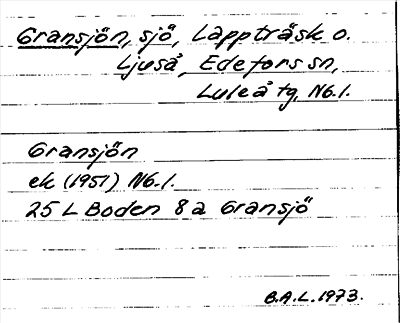 Gransjön, sjö, Lappträsk o.
Ljuså, Edefors sn,
Luleå tg, Nb.l.
Gransjön
ek (1951) Nb.l.
25 L Boden 8 a Gransjö
B.A.L. 1973.